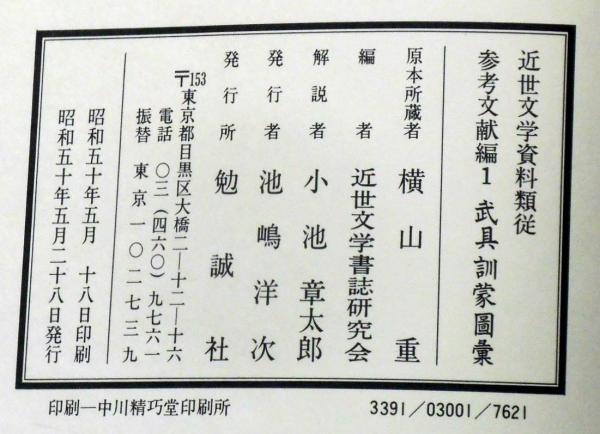 近世文学資料類従
参考文献編1 武具訓蒙圖彙
原本所蔵者 横山重
編者 近世文学書誌研究会
解説者 小池章太郎
発行者 池嶋洋次
発行所 勉誠社
〒153 東京都目黒区大橋二―十二―十六
電話 〇三(四六〇)九七六一
振替 東京一〇二七三九
昭和五十年五月 十八日印刷
昭和五十年五月二十八日発行
印刷―中川精巧堂印刷所
3391/03001/7621